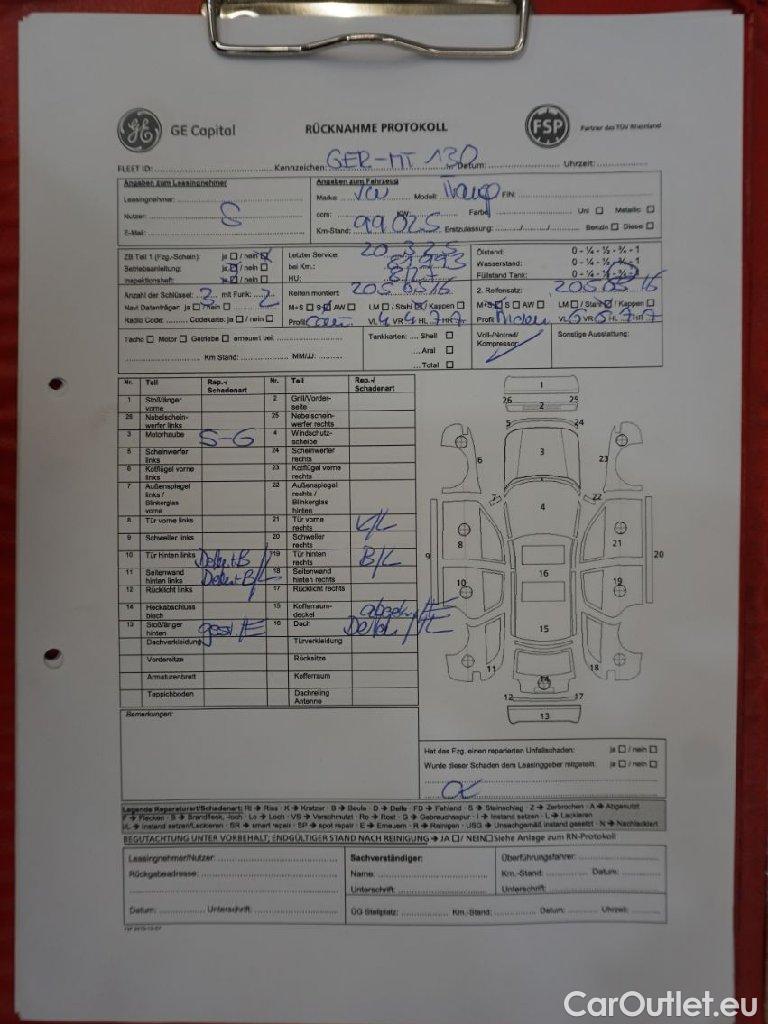 GE Capital
RÜCKNAHME PROTOKOLL
FSP
Partner des TÜV Rheinland
FLEET ID: Kennzeichen: GER-MT 130 Datum: Uhrzeit:
Angaben zum Leasingnehmer
Leasingnehmer:
Nutzer: S
E-Mail:
Angaben zum Fahrzeug
Marke: VW Modell: FIN:
ccm: KW Farbe: Uni Metallic
Km-Stand: 99025 Erstzulassung: Benzin Diesel
ZB Teil 1 (Fzg.-Schein): ja / nein
Betriebsanleitung: ja / nein
Inspektionsheft: ja / nein
Letzter Service:
bei Km.:
HU:
Ölstand: 0 - ¼ - ½ - ¾ - 1
Wasserstand: 0 - ¼ - ½ - ¾ - 1
Füllstand Tank: 0 - ¼ - ½ - ¾ - 1
Anzahl der Schlüssel: 2 mit Funk: 2
Navi Datenträger: ja / nein
Radio Code: Codekarte: ja / nein
Reifen montiert: 205 65 16
M+S S AW LM Stahl / Kappen
Profil VL 4 VR 4 HL 7 HR 7
2. Reifensatz: 205 65 16
M+S S AW LM / Stahl / Kappen
Profil VL 6 VR 6 HL 7 HR 7
Tacho Motor Getriebe erneuert bei
Km Stand: MM/JJ:
Tankkarten: Shell
Aral
Total
Kompressor:
Sonstige Ausstattung:
Nr. Teil Rep.-/ Schadenart Nr. Teil Rep.-/ Schadenart
1 Stoßfänger vorne 2 Grill/Vorderseite
26 Nebelscheinwerfer links 25 Nebelscheinwerfer rechts
3 Motorhaube S-G 4 Windschutzscheibe
5 Scheinwerfer links 24 Scheinwerfer rechts
6 Kotflügel vorne links 23 Kotflügel vorne rechts
7 Außenspiegel links / Blinkerglas vorne 22 Außenspiegel rechts / Blinkerglas hinten
8 Tür vorne links 21 Tür vorne rechts K/L
9 Schweller links 20 Schweller rechts
10 Tür hinten links 19 Tür hinten rechts B/L
11 Seitenwand hinten links 18 Seitenwand hinten rechts
12 Rücklicht links 17 Rücklicht rechts
14 Heckabschlussblech 15 Kofferraumdeckel
13 Stoßfänger hinten 16 Dach
Dachverkleidung Türverkleidung
Vordersitze Rücksitze
Armaturenbrett Kofferraum
Teppichboden Dachreling Antenne
1
26 25
2
5 24
6 3 23
7 22
4
8 21
9 20
16
10 19
15
11 18
14
12 17
13
Bemerkungen:
Hat das Fzg. einen reparierten Unfallschaden: ja / nein
Wurde dieser Schaden dem Leasinggeber mitgeteilt: ja / nein
Legende Reparaturart/Schadenart: RI → Riss · K → Kratzer · B → Beule · D → Delle · FD → Fehlend · S → Steinschlag · Z → Zerbrochen · A → Abgenutzt
F → Flecken · B → Brandfleck, -loch · Lo → Loch · VS → Verschmutzt · Ro → Rost · G → Gebrauchsspur · I → Instand setzen · L → Lackieren
I/L → Instand setzen/Lackieren · SR → smart repair · SP → spot repair · E → Erneuern · R → Reinigen · USG → Unsachgemäß instand gesetzt · N → Nachlackiert
BEGUTACHTUNG UNTER VORBEHALT; ENDGÜLTIGER STAND NACH REINIGUNG → JA / NEIN Siehe Anlage zum RN-Protokoll
Leasingnehmer/Nutzer:
Rückgabeadresse:
Datum: Unterschrift:
Sachverständiger:
Name:
Unterschrift:
Überführungsfahrer:
Km.-Stand: Datum:
Unterschrift:
ÜG Stellplatz: Km.-Stand: Datum: Uhrzeit:
CarOutlet.eu